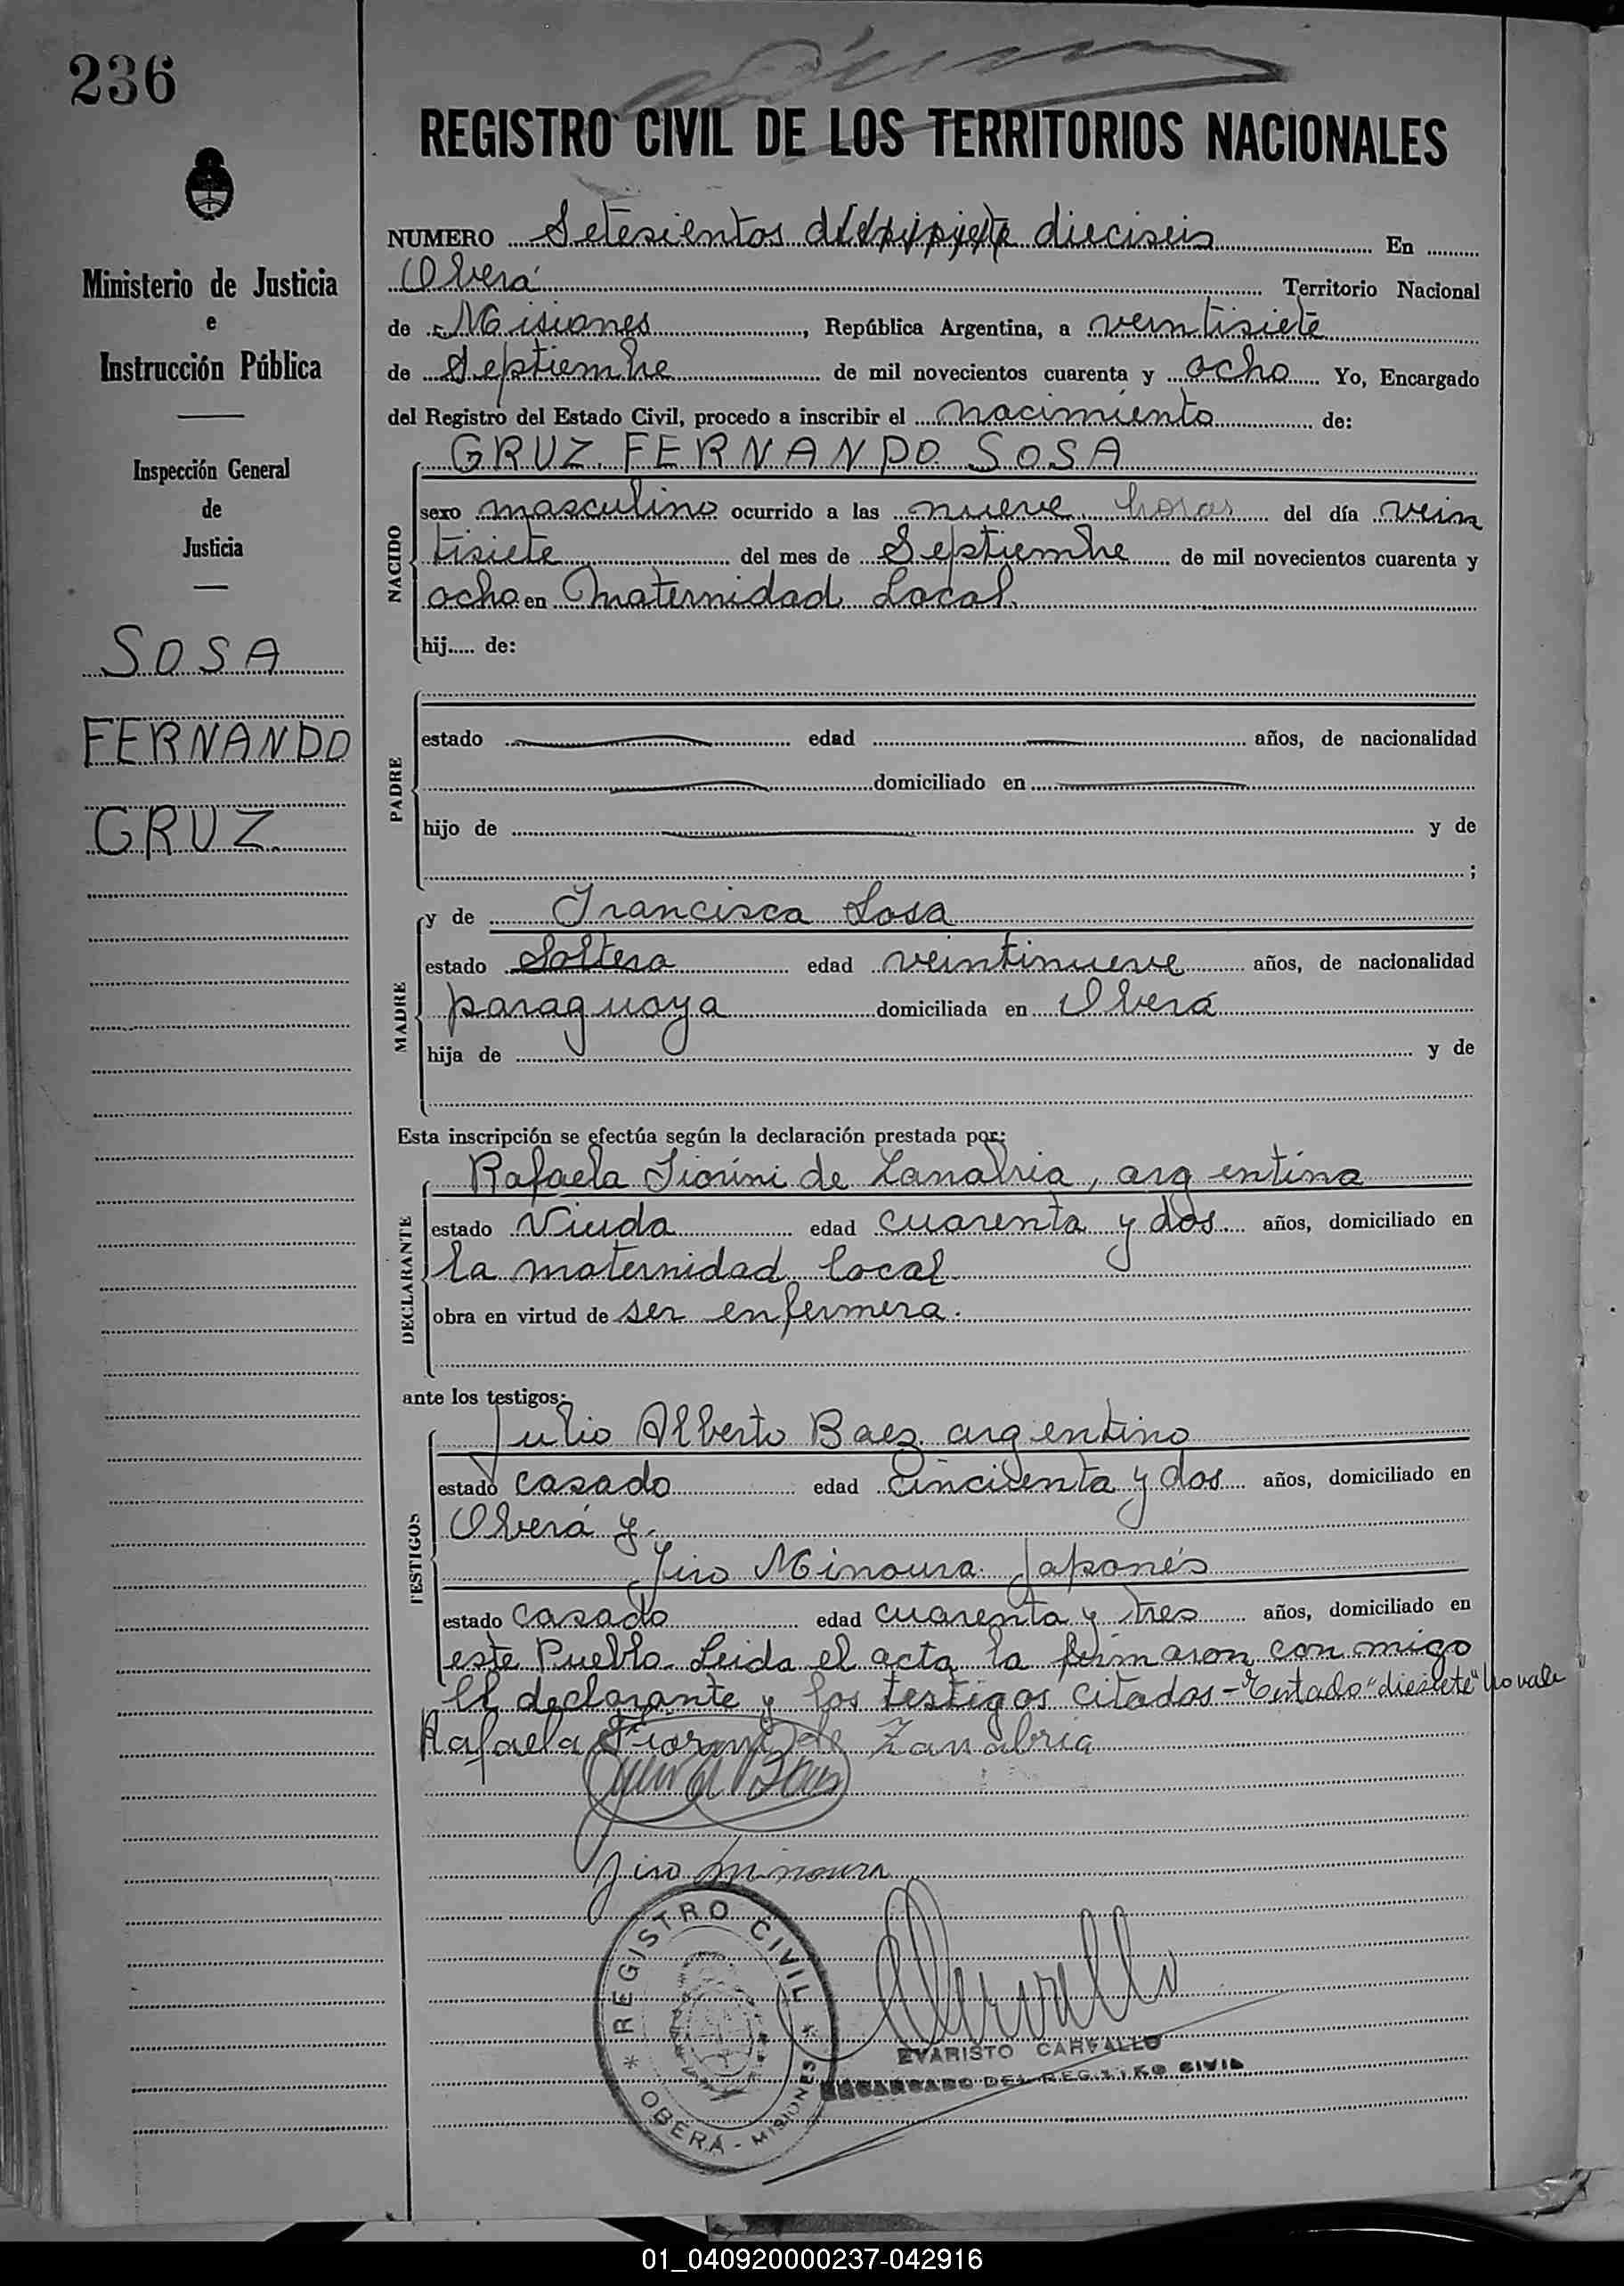 236
REGISTRO CIVIL DE LOS TERRITORIOS NACIONALES
Ministerio de Justicia
e
Instrucción Pública
Inspección General
de
Justicia
SOSA
FERNANDO
GRUZ
NUMERO Setesientos diesisiete dieciseis En
Oberá Territorio Nacional
de Misiones, República Argentina, a veintisiete
de Septiembre de mil novecientos cuarenta y ocho Yo, Encargado
del Registro del Estado Civil, procedo a inscribir el nacimiento de:
GRUZ FERNANDO SOSA
NACIDO
sexo masculino ocurrido a las nueve horas del día vein
tisiete del mes de Septiembre de mil novecientos cuarenta y
ocho en Maternidad Local
hij..... de:
PADRE
estado edad años, de nacionalidad
domiciliado en
hijo de y de
;
MADRE
y de Francisca Sosa
estado Soltera edad veintinueve años, de nacionalidad
paraguaya domiciliada en Oberá
hija de y de
Esta inscripción se efectúa según la declaración prestada por:
DECLARANTE
Rafaela Fiorini de Zanabria, argentina
estado Viuda edad cuarenta y dos años, domiciliado en
la maternidad local
obra en virtud de ser enfermera.
ante los testigos:
TESTIGOS
Julio Alberto Baez argentino
estado casado edad cincuenta y dos años, domiciliado en
Oberá y
Jiro Minoura Japonés
estado casado edad cuarenta y tres años, domiciliado en
este Pueblo. Leida el acta la firmaron con migo
el declarante y los testigos citados - Testado "diesiete" No vale
Rafaela Fiorini de Zanabria
Jiro Minoura
REGISTRO CIVIL
* OBERÁ - MISIONES *
EVARISTO CARVALLO
ENCARGADO DEL REGISTRO CIVIL
01_040920000237-042916